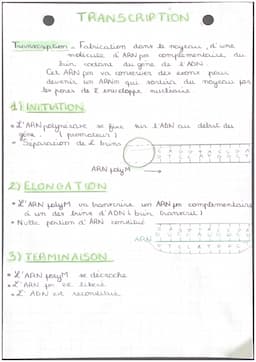 TRANSCRIPTION
Transcription = Fabrication dans le noyau, d'une
molécule d'ARN pm complémentaire, du
brin du gène de l'ADN.
Cet ARN pm va conserver des exons pour
devenir un ARNm qui sortira du noyau par
les pores de l'enveloppe nucléaire.
1) INITIATION
• L'ARN polymérase se fixe sur l'ADN au début du
gène. (promoteur)
• Séparation de 2 brins
ARN polyM
2) ELONGATION
• L'ARN polyM va transcrire un ARN pm complémentaire
à un des brins d'ADN (brin transcrit)
portion d'ARN constitué
ARN
3) TERMINAISON
• L'ARN polyM se décroche
• L'ARN pm est libéré
• L'ADN est reconstitué